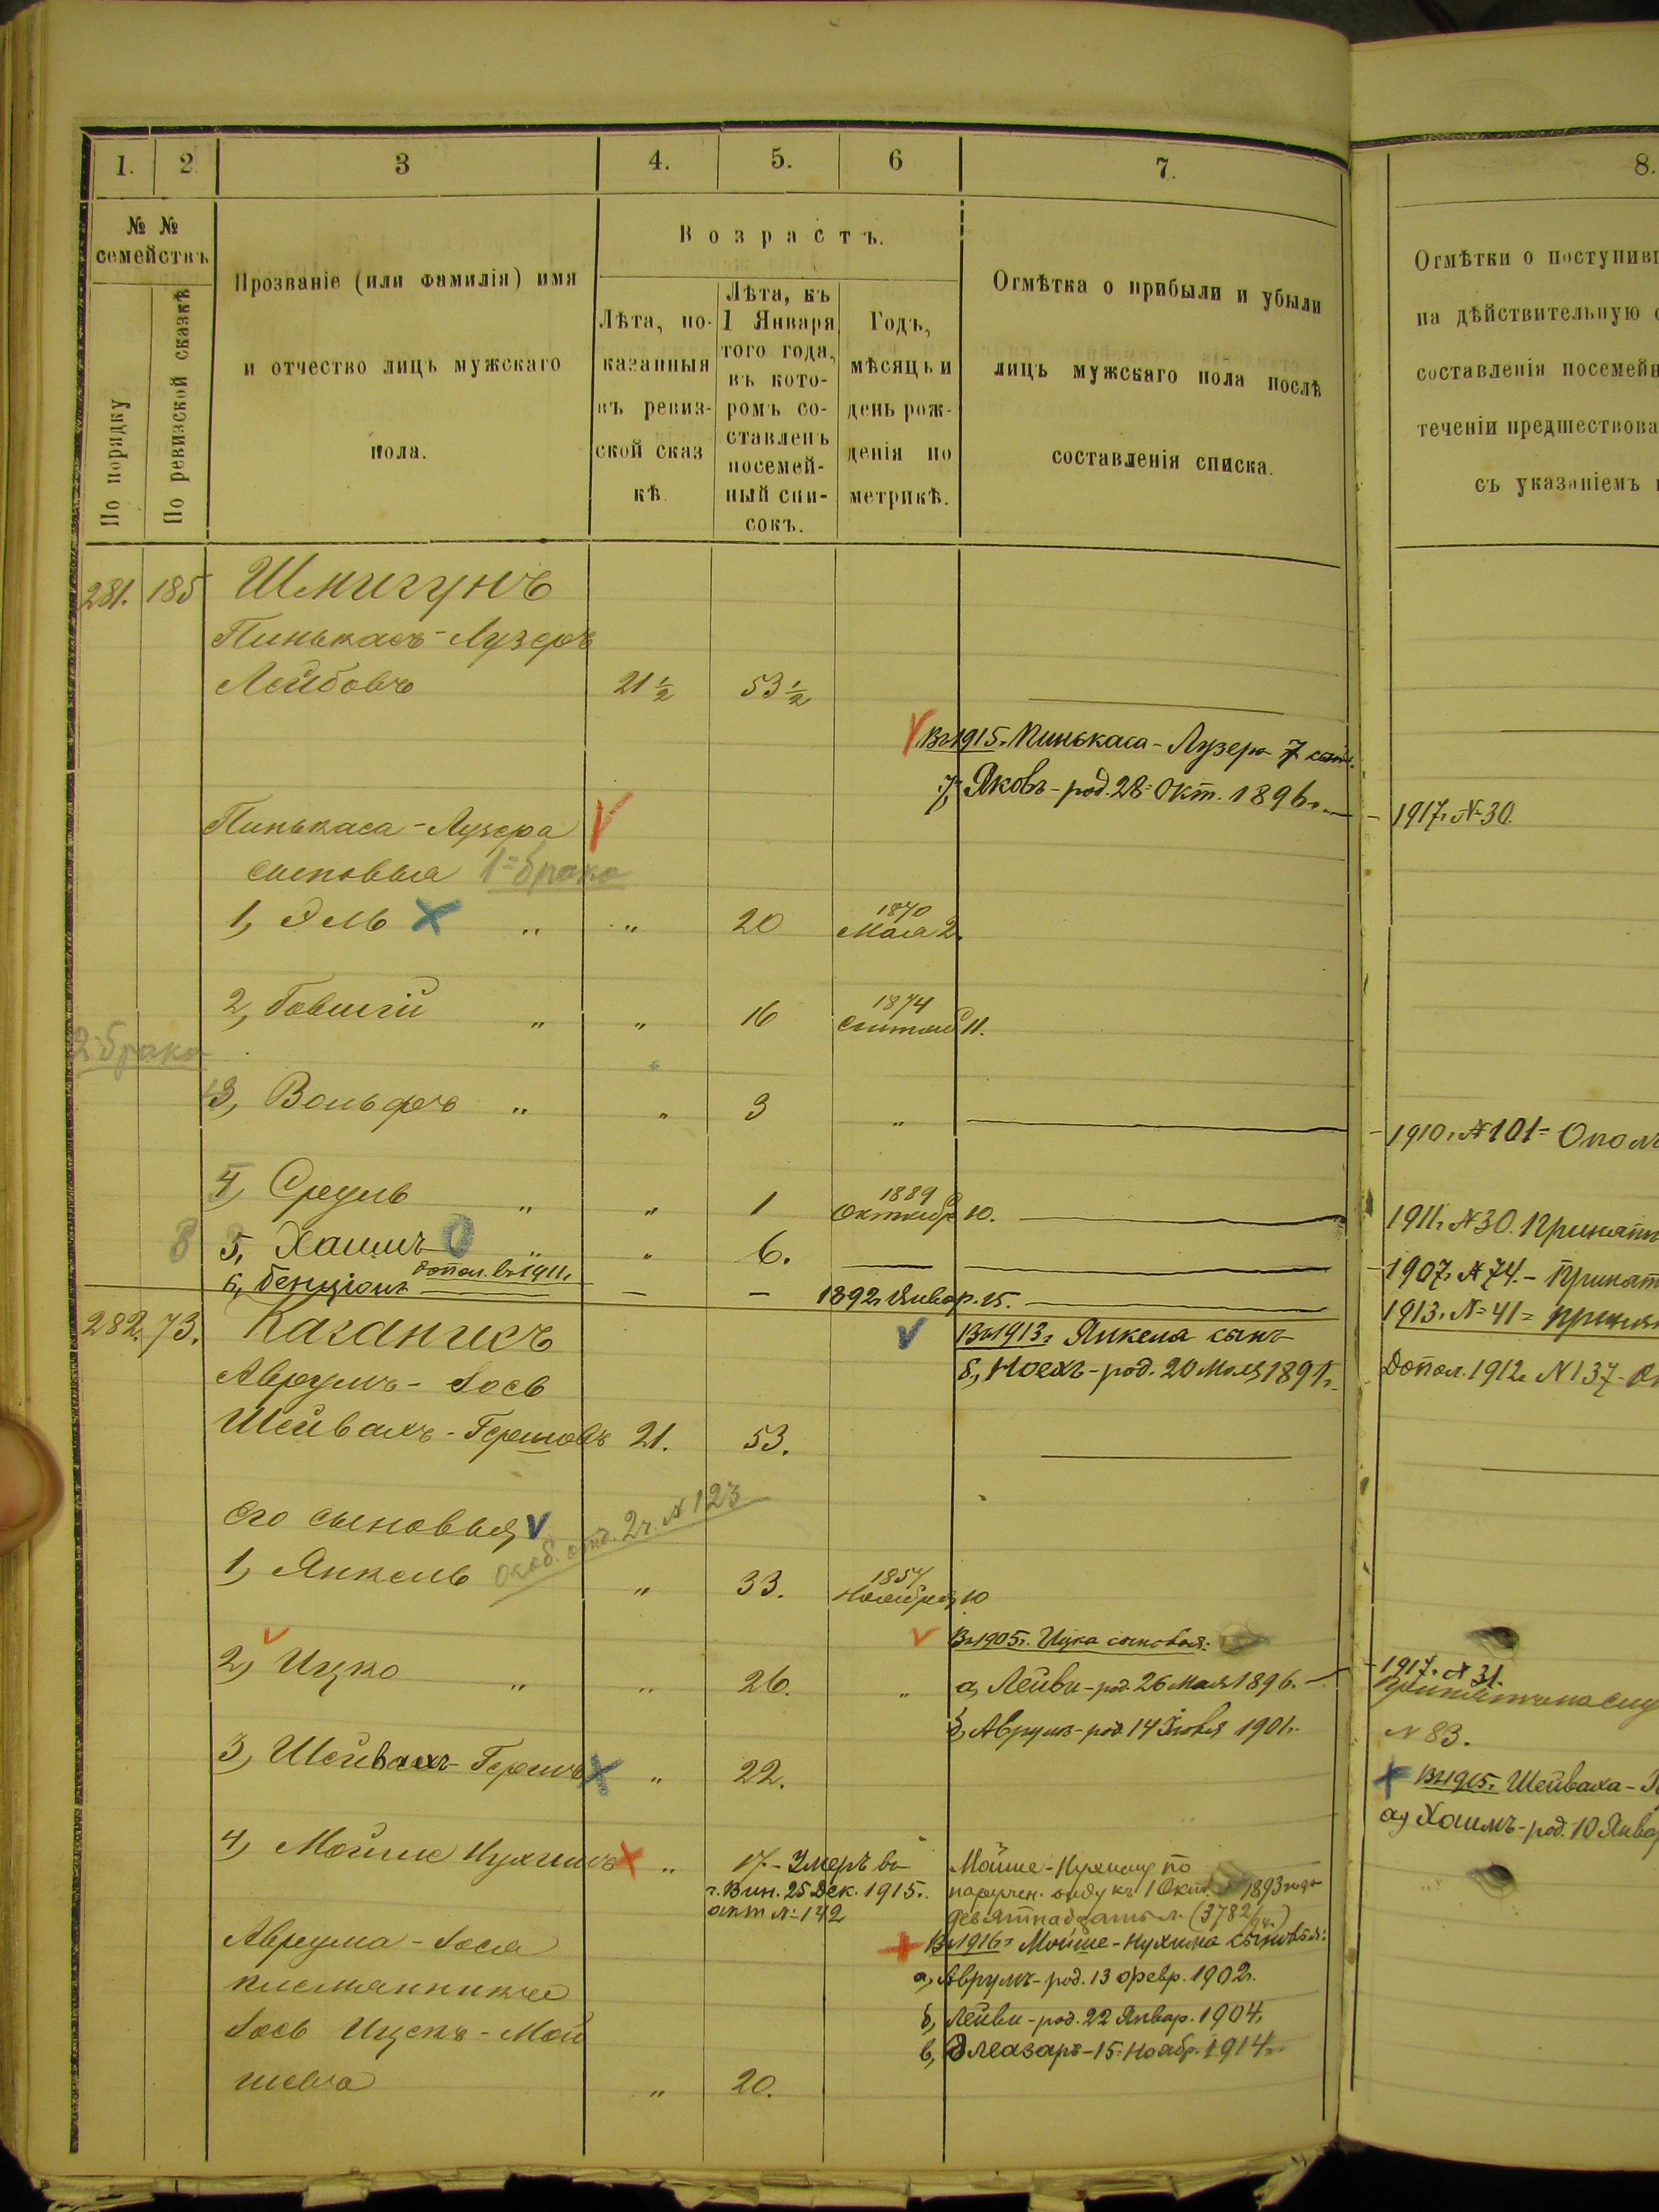 1. 2. 3 4. 5. 6 7. 8.
№ № семействъ
По порядку
По ревизской сказкѣ
Прозваніе (или фамилія) имя
и отчество лицъ мужскаго
пола.
Возрастъ.
Лѣта, по-
казанныя
въ ревиз-
ской сказ
кѣ.
Лѣта, къ
1 Января
того года,
въ кото-
ромъ со-
ставленъ
посемей-
ный спи-
сокъ.
Годъ,
мѣсяцъ и
день рож-
денія по
метрикѣ.
Отмѣтка о прибыли и убыли
лицъ мужскаго пола послѣ
составленія списка.
Отмѣтки о поступивш
на дѣйствительную с
составленія посемейн
теченіи предшествова
съ указаніемъ
281. 185 Шмигунъ
Пинькасъ-Лузеръ
Лейбовъ 21½ 53½
Въ 1915г. Пинькаса-Лузера 7 сынъ
7, Яковъ-род. 28 Окт. 1896г. 1917г. №30.
Пинькаса-Лузера
сыновья 1= брака
1, Эль " " 20 1870 Мая 2.
2, Говшій " " 16 1874 11.
2 брака
3, Вольфъ " " 3 " 1910г. №101= Опол
4, Сруль " " 1 1889 Октября 10. 1911г. №30. Принятъ
8 5, Хаимъ " " 6. 1907г. №74.- Принят
6, Бенціонъ допол. въ 1911г. — — 1892г. Январ. 15. 1913г. №41= принят
282. 73. Каганикъ Въ 1913г. Янкеля сынъ
Аврумъ-Іось б, Ноехъ-род. 20 Мая 1891г. Допол. 1912г. №137-
Шейвахъ-Гершовъ 21. 53.
Его сыновья
1, Янкель особ. отд. 2ч. №123 " 33. 1857 Ноября 10
2, Ицко " " 26. " Въ 1905г. Ицка сыновья:
а, Лейви-род. 26 Мая 1896. 1917г. №31.
б, Аврумъ-род. 14 Іюня 1901г. №83.
3, Шейвахъ-Гершъ " 22. Въ 1905г. Шейваха-Г
а, Хаимъ-род. 10 Январ
4, Мойше Нухимъ " 17.-Умеръ въ
г. Вин. 25 Дек. 1915г.
акт №142
Мойше-Нухиму по
наружн. виду къ 1 Окт. 1893 года
девятнадцать л. (3782/94г.)
Въ 1916г. Мойше-Нухима сыновья:
а, Аврумъ-род. 13 февр. 1902г.
б, Лейви-род. 22 Январ. 1904,
в, Элеазаръ-15 Ноябр. 1914г.
Аврума-Іося
племянникъ
Іось Ицекъ-Мой
шевъ " 20.